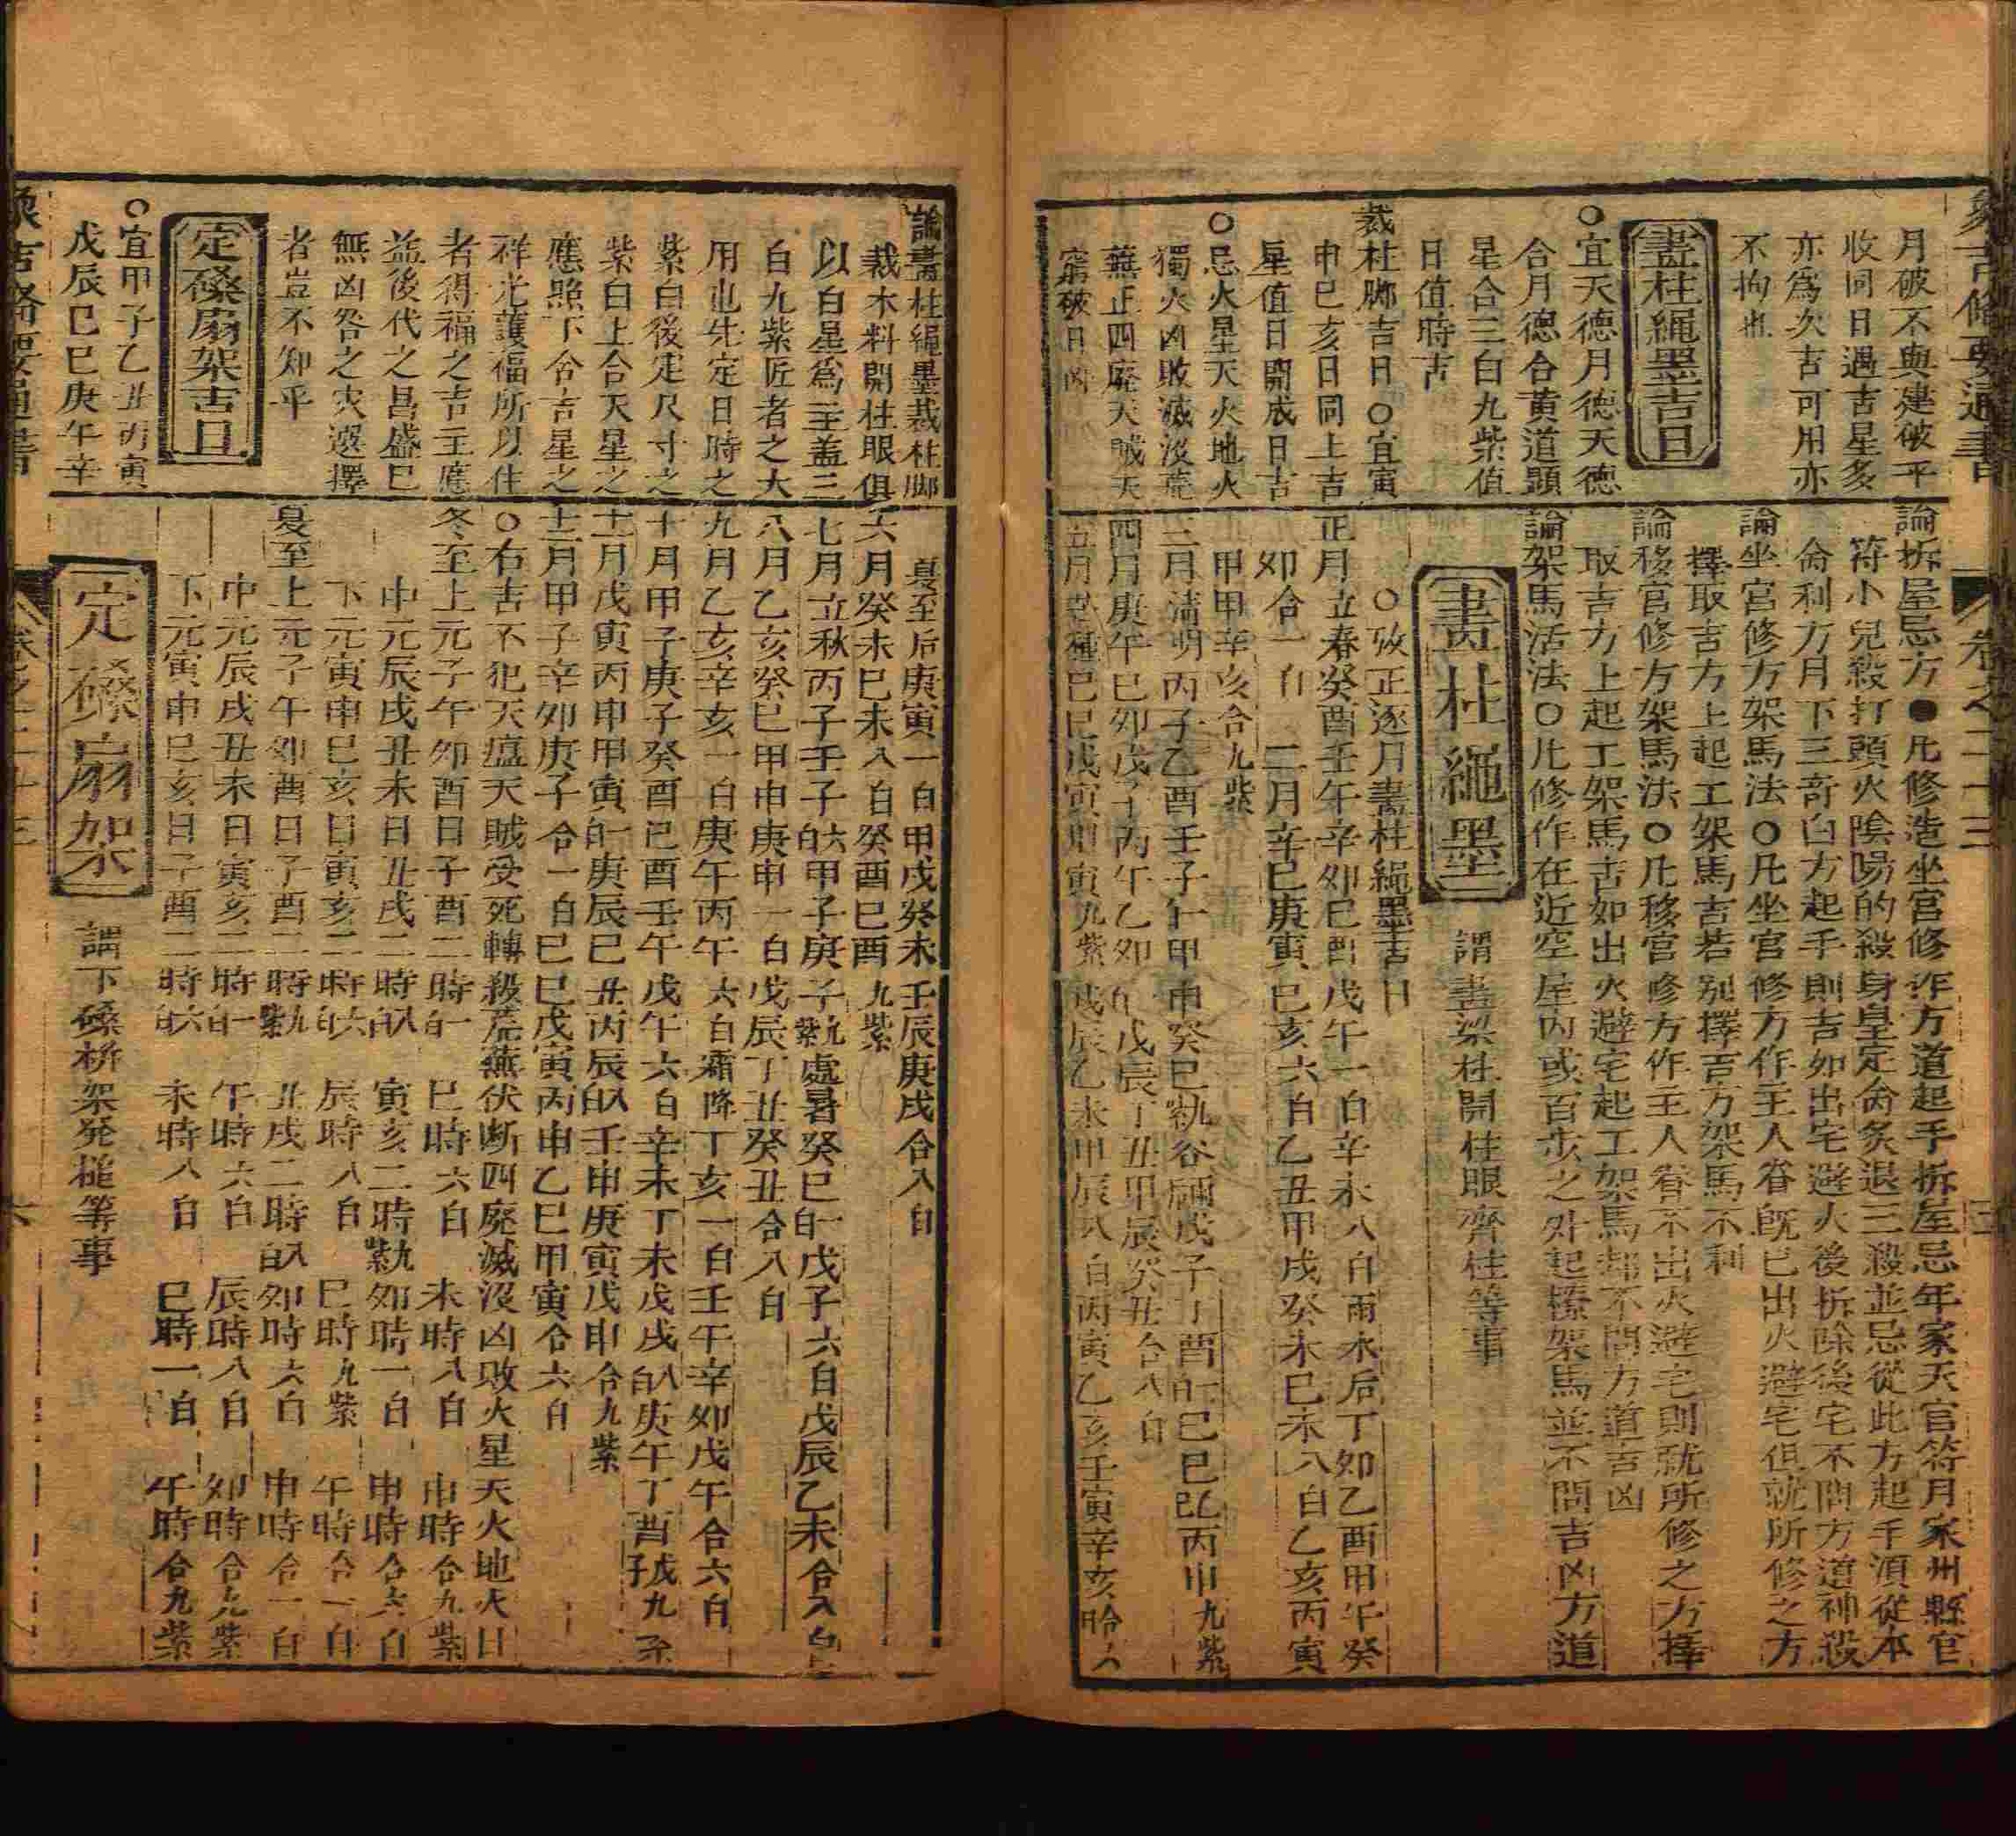 象吉備要通書
卷之二十三
月破不與建破平
收同日遇吉星多
亦爲次吉可用亦
不拘也
畫柱繩墨吉日
○宜天德月德天德
合月德合黃道顯
星合三白九紫值
日值時吉
裁柱脚吉日○宜寅
申巳亥日同上吉
星值日開成日吉
○忌火星天火地火
獨火凶敗滅沒荒
蕪正四廢天賊天
窮破日凶
論拆屋忌方●凡修造坐宮修作方道起手拆屋忌年家天官符月家州縣官
符小兒殺打頭火陰陽的殺身皇定命灸退三殺並忌從此方起手須從本
命利方月下三奇白方起手則吉如出宅避火後拆除後宅不問方道神殺
論坐宮修方架馬法○凡坐宮修方作主人眷既已出火避宅但就所修之方
擇取吉方上起工架馬吉若別擇吉方架馬不利
論移宮修方架馬法○凡移宮修方作主人眷不出火避宅則就所修之方擇
取吉方上起工架馬吉如出火避宅起工架馬却不問方道吉凶
論架馬活法○凡修作在近空屋內或百步之外起樣架馬並不問吉凶方道
畫柱繩墨 謂畫梁柱開柱眼齊柱等事
○攷正逐月畫柱繩墨吉日
正月立春癸酉壬午辛卯巳酉戊午一白辛未八白雨水后丁卯乙酉甲午癸
卯合一白 二月辛巳庚寅巳亥六白乙丑甲戌癸未巳未八白乙亥丙寅
甲甲辛亥合九紫
三月清明丙子乙酉壬子午甲申癸巳九紫谷雨戊子丁酉一白巳巳丙申九紫
四月庚午巳卯戊子丙午乙卯一白戊辰丁丑甲辰癸丑合八白
五月芒種巳巳戊寅甲寅九紫戊辰乙未甲辰八白丙寅乙亥壬寅辛亥合六
論畫柱繩墨裁柱脚
裁木料開柱眼俱
以白星爲主蓋三
白九紫匠者之大
用也先定日時之
紫白後定尺寸之
紫白上合天星之
應照下合吉星之
祥光護福所以住
者得福之吉主應
益後代之昌盛已
無凶咎之灾選擇
者豈不知乎
定磉扇架吉日
○宜甲子乙丑丙寅
戊辰巳巳庚午辛
夏至后庚寅一白甲戌癸未壬辰庚戌合八白
六月癸未巳未八白癸酉巳酉九紫
七月立秋丙子壬子六白甲子庚子九紫處暑癸巳一白戊子六白戊辰乙未合八白
八月乙亥癸巳甲申庚申一白戊辰丁丑癸丑合八白
九月乙亥辛亥一白庚午丙午六白霜降丁亥一白壬午辛卯戊午合六白
十月甲子庚子癸酉己酉壬午戊午六白辛未丁未戊戌八白庚午丁酉戊子九紫
十一月戊寅丙申甲寅一白庚辰巳丑丙辰八白壬申庚寅戊申合九紫
十二月甲子辛卯庚子合一白巳巳戊寅丙申乙巳甲寅合六白
○右吉不犯天瘟天賊受死轉殺荒蕪伏斷四廢滅沒凶敗火星天火地火日
冬至上元子午卯酉日子酉二時一白 巳時六白 未時八白 申時合九紫
中元辰戌丑未日丑戌二時八白 寅亥二時九紫 卯時一白 申時合六白
下元寅申巳亥日寅亥二時六白 辰時八白 巳時九紫 午時合一白
夏至上元子午卯酉日子酉二時九紫 丑戌二時八白 卯時六白 申時合一白
中元辰戌丑未日寅亥二時一白 午時六白 辰時八白 卯時合九紫
下元寅申巳亥日子酉二時六白 未時八白 巳時一白 午時合九紫
定磉扇架 謂下磉栟架発槌等事
象吉備要通書
卷之二十三
六